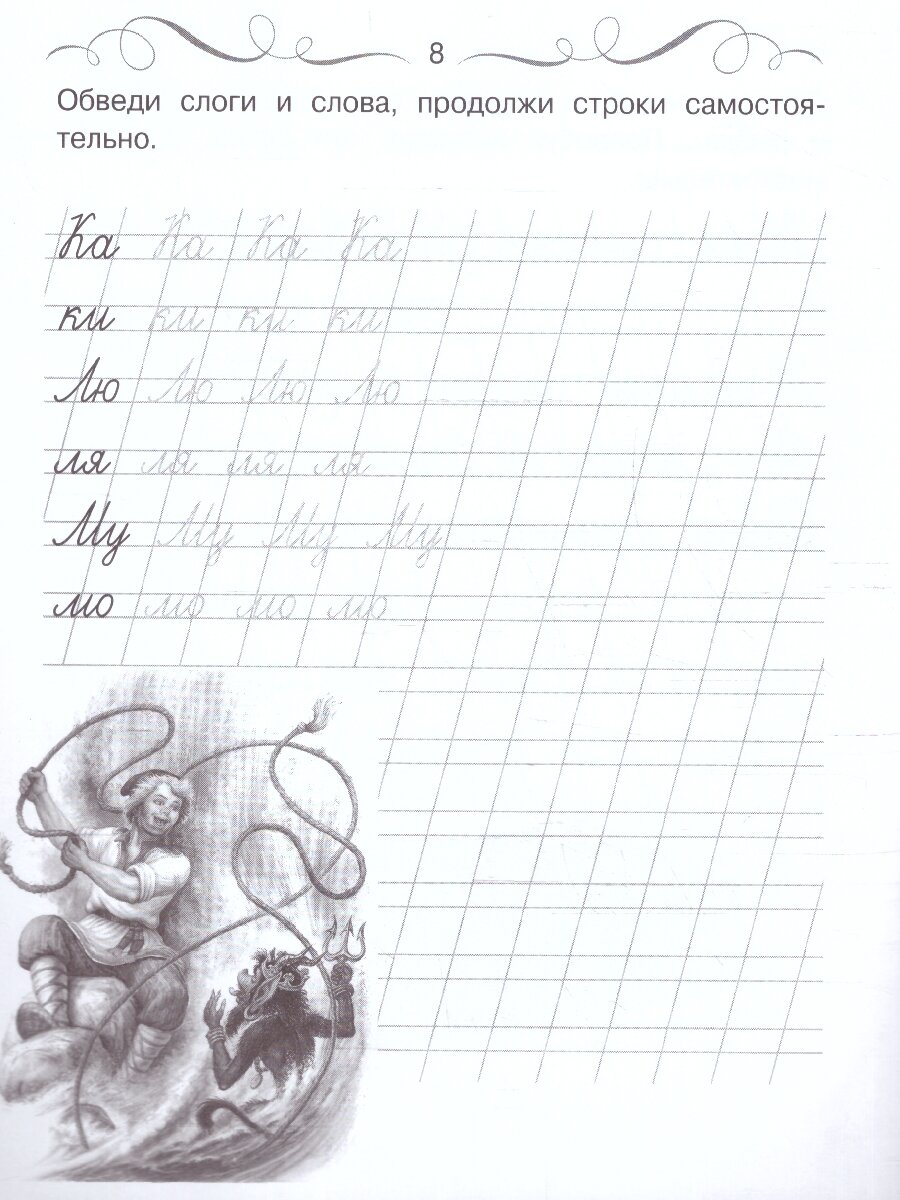 8
Обведи слоги и слова, продолжи строки самостоя-
тельно.
Ка Ка Ка Ка
ки ки ки ки
Лю Лю Лю Лю
ля ля ля ля
Му Му Му Му
мо мо мо мо